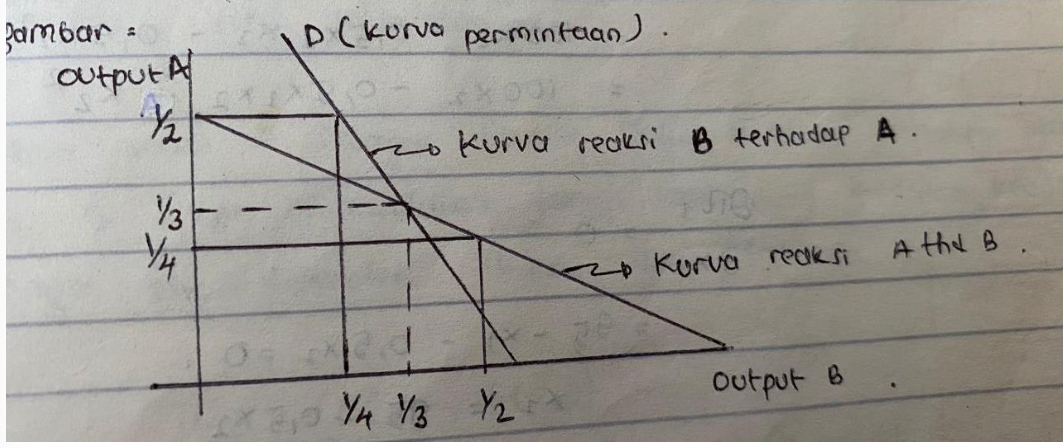 gambar =
D (kurva permintaan).
Output A
1/2
Kurva reaksi B terhadap A.
1/3
1/4
Kurva reaksi A thd B.
Output B.
1/4 1/3 1/2